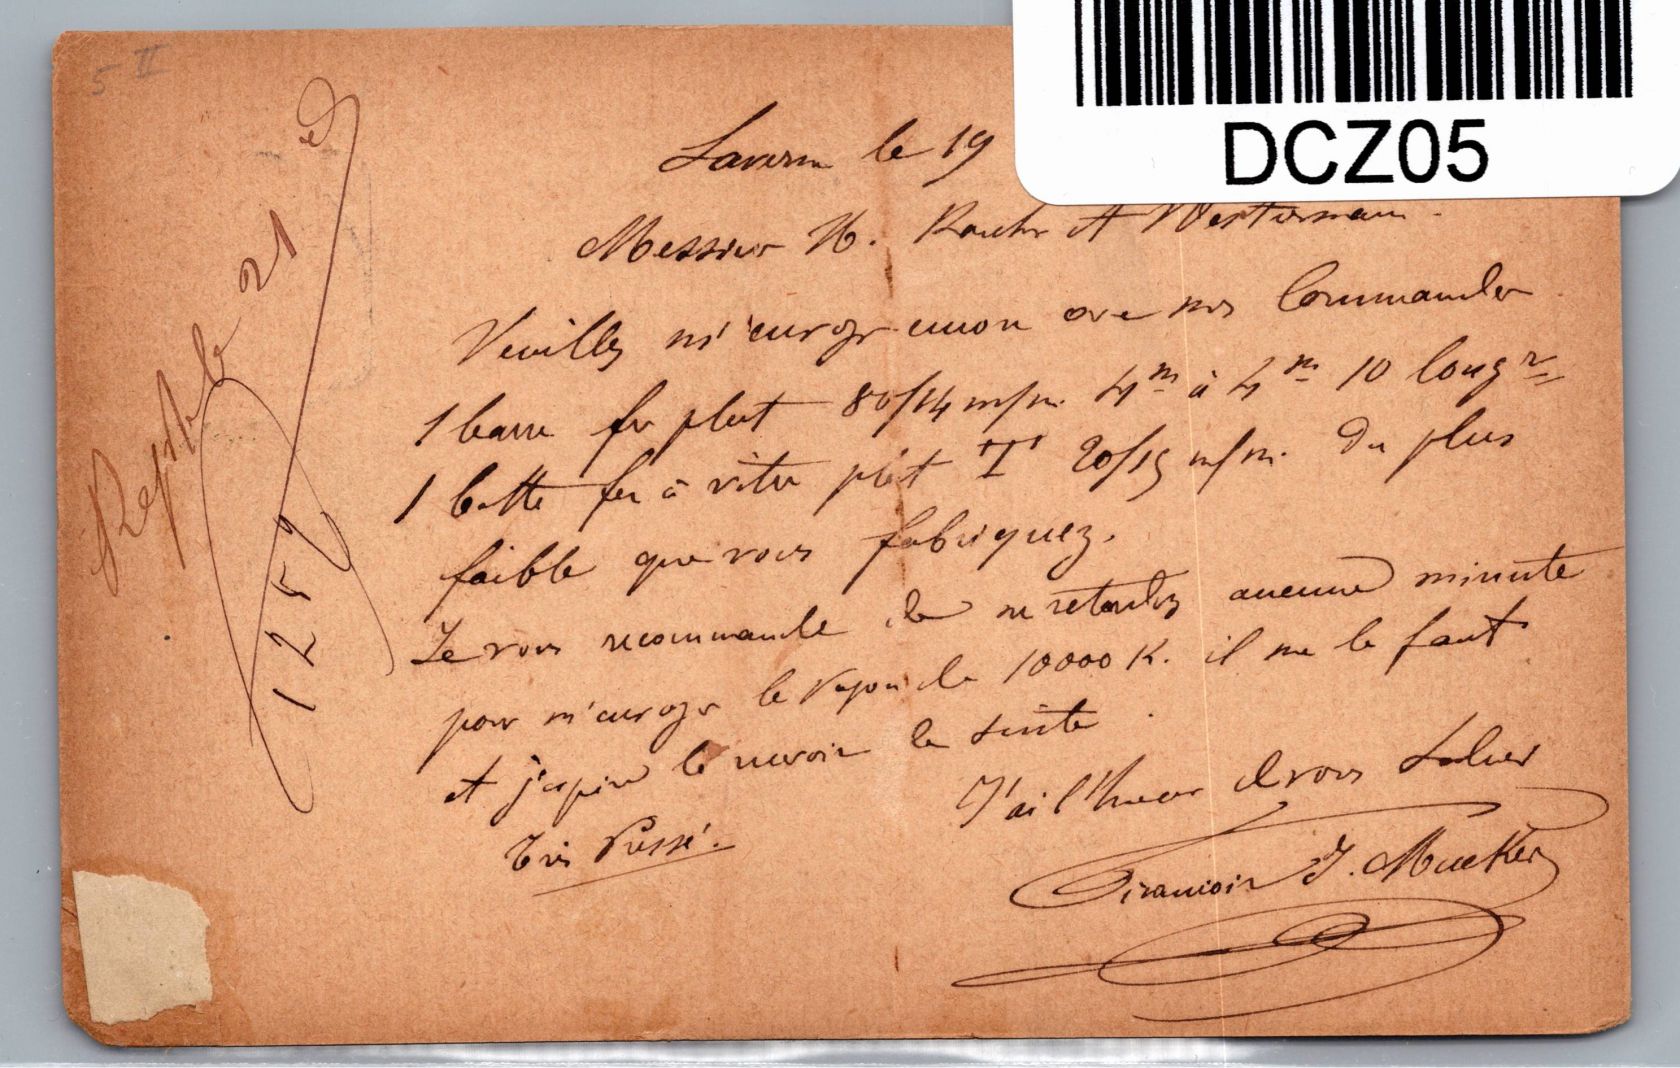 5 II
DCZ05
Savern le 19
Messieur H. et Westermann.
Veuillez m'envoyer encore avec nos Commandes
1 barre fer plat 80/14 m/m. 4m à 4m 10 longr
1 botte fer à vitre ptit T 20/15 m/m. Du plus
faible que vous fabriquez.
Je vous recommande de ne retardez aucune minute
pour m'envoyer le Vagon de 10000 K. il me le faut
et j'espère le revoir de suite.
Très Pressé.
J'ai l'honeur de vous Saluer
J. Mueker
21
1259